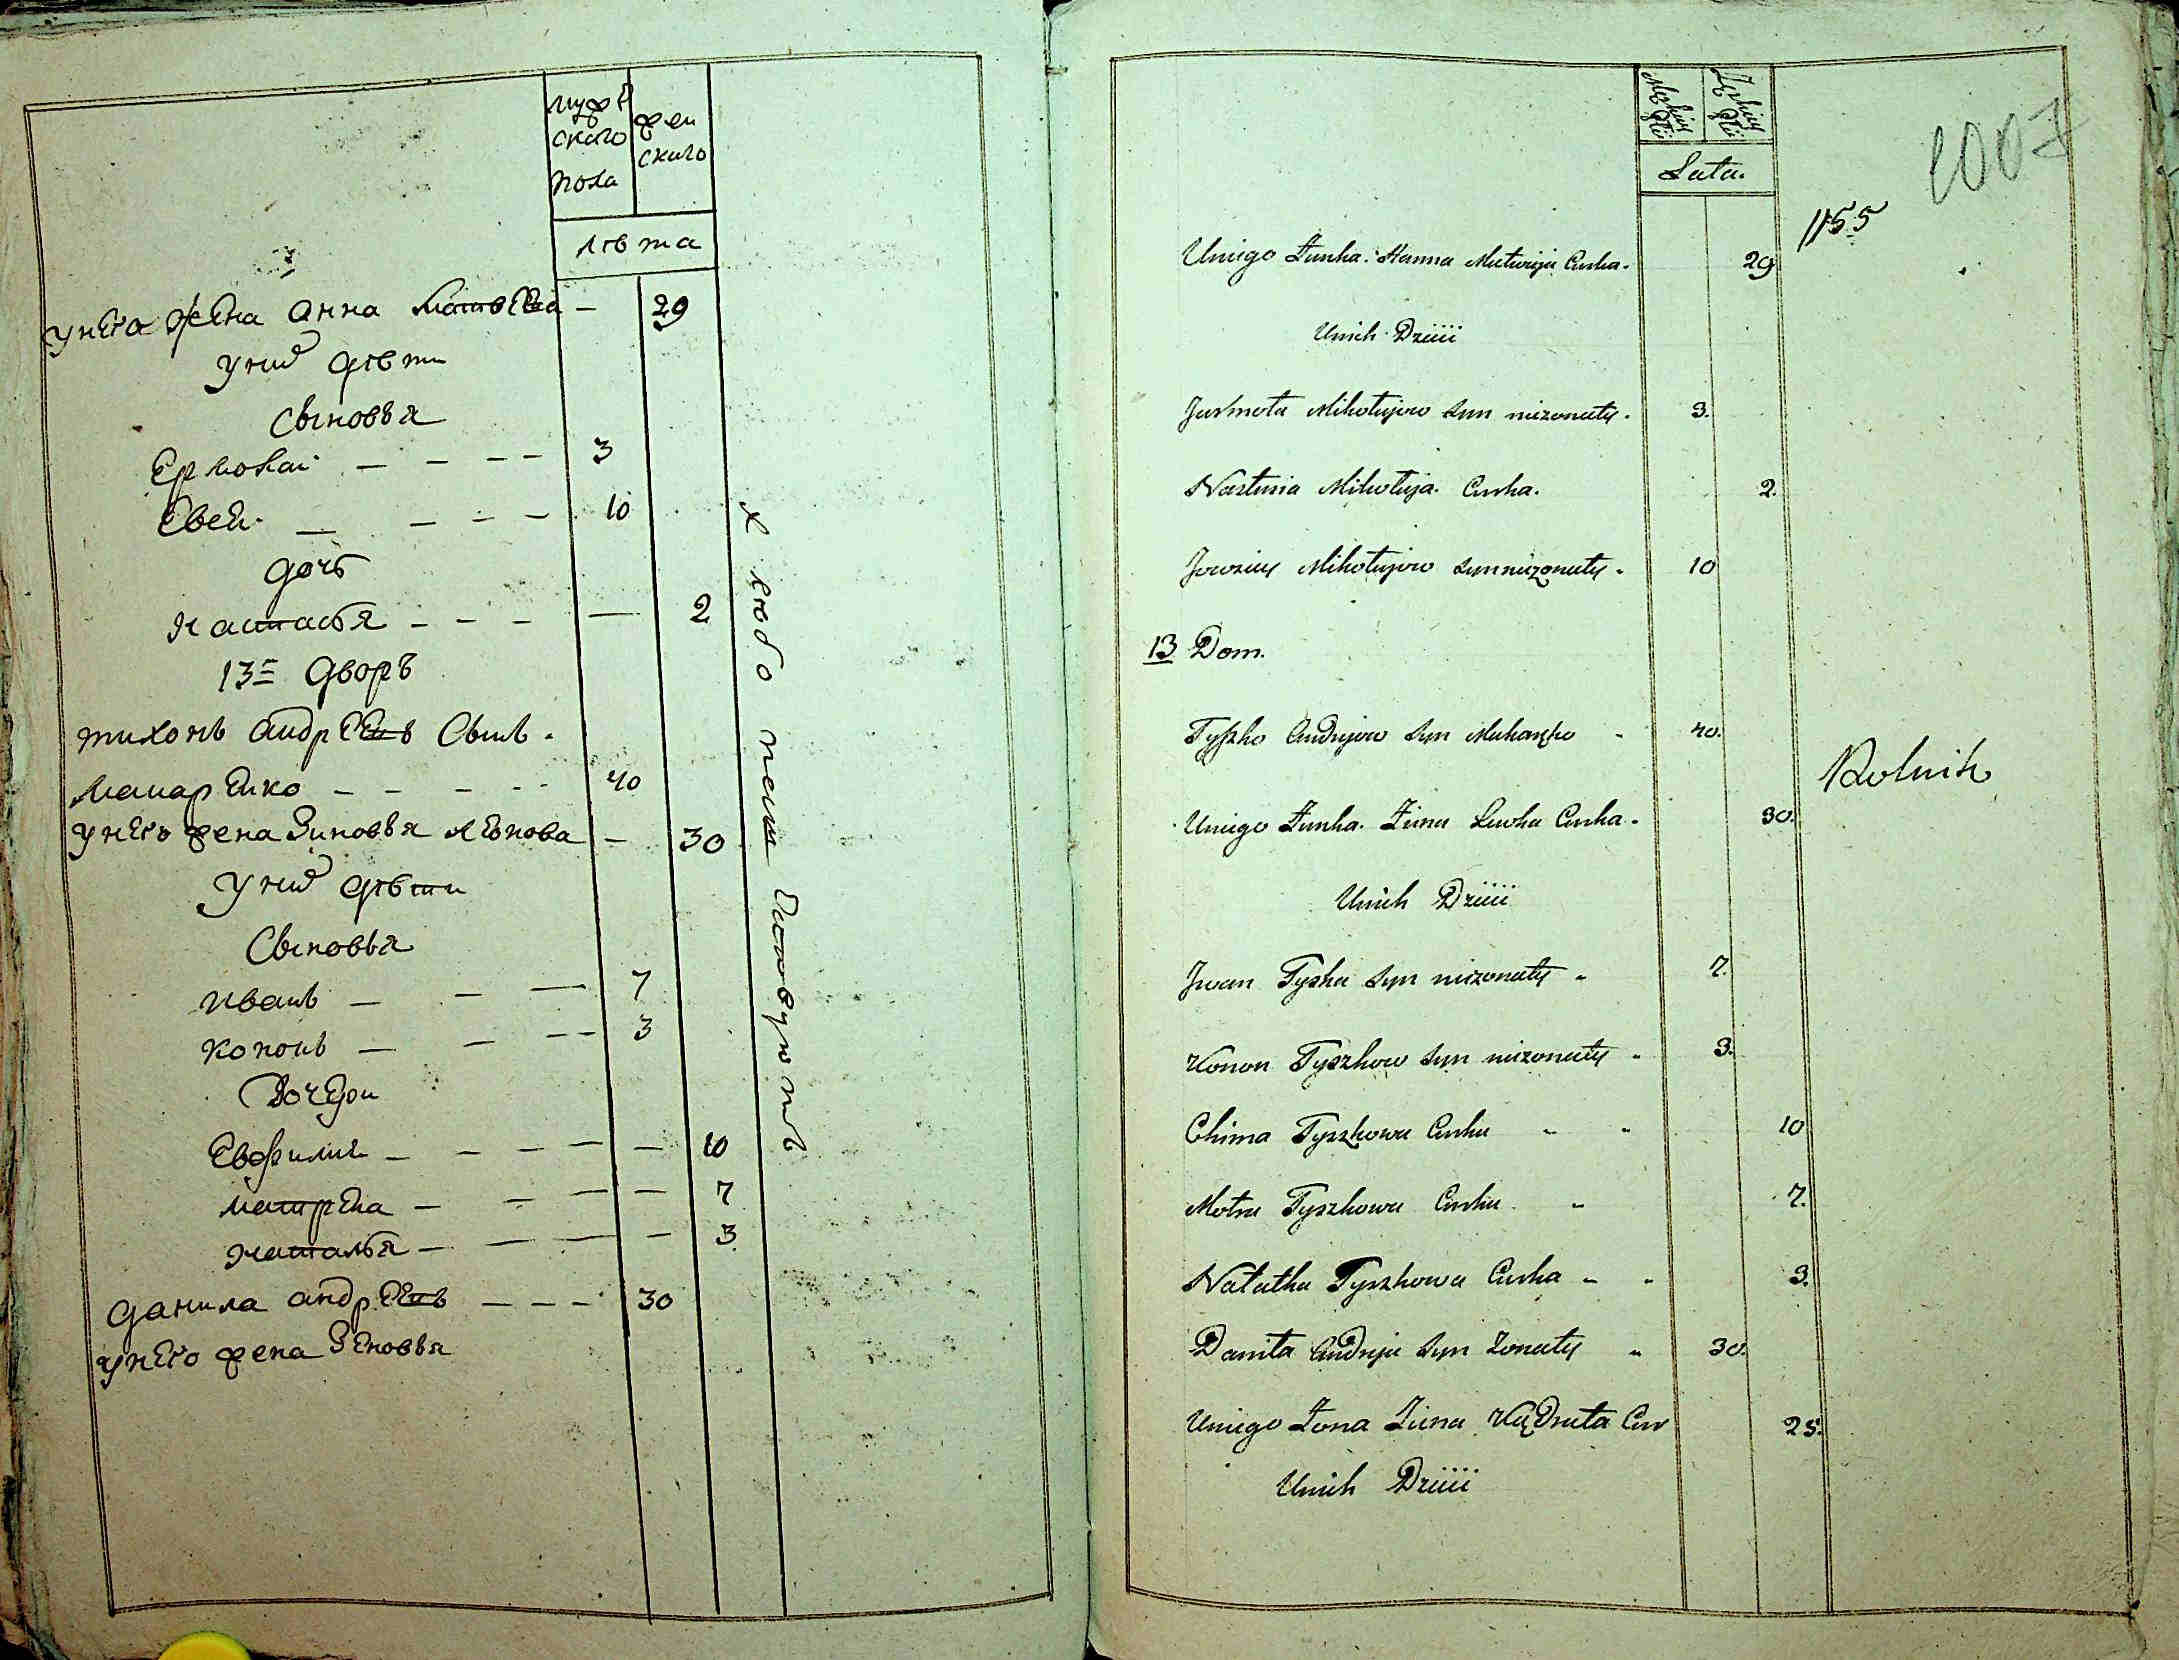 мужескаго пола
женскаго
лѣта
у него жена Анна Матвѣева — 29
у них дѣти
Сыновья
Ермолай — — — — 3
Евсей — — — — 10
дочь
Настасья — — — — 2
13й дворъ
Тихонъ Андреевъ Сынъ
Макаренко — — — — 40
у него жена Зиновья Львова — 30
у них дѣти
Сыновья
Иванъ — — — 7
Кононъ — — — — 3
Дочери
Евфимия — — — — — 10
Матрена — — — — 7
Наталья — — — — 3
Данила Андреевъ — — — 30
у него жена Зеновья
хлебопашествуютъ
Męzkiej Płci
Żeńskiej Płci
Lata.
1007
1155
Uniego Żunka. Hanna Matwija Curka. 29
Unich Dzieci
Jarmoła Mikołajow syn nieżonaty. 3.
Nastusia Mikołaja. Curka. 2.
Jowsiey Mikołajow syn nieżonaty. 10
13 Dom.
Tyszko Andryjow syn Makarenko 40.
Rolnik
Uniego Żunka. Zina Lewka Curka. 30.
Unich Dzieci
Jwan Tyszka syn nieżonaty 7.
Konon Tyszkow syn nieżonaty 3.
Chima Tyszkowa Curka 10
Motra Tyszkowa Curka 7.
Natałka Tyszkowa Curka 3.
Daniła Andryja syn Żonaty 30.
Uniego Żona Zina Kądrata Cur 25.
Unich Dzieci